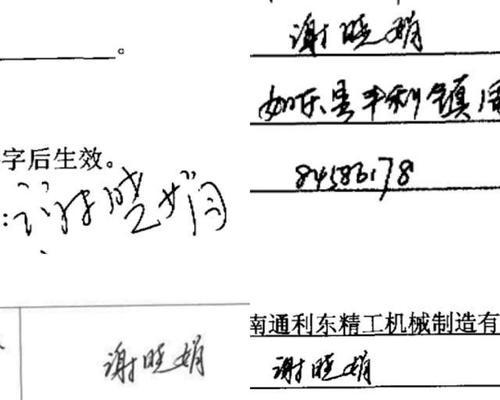 。
字后生效。
:谢晓娟
谢晓娟
谢晓娟
如东县丰利镇
84586178
南通利东精工机械制造有
谢晓娟